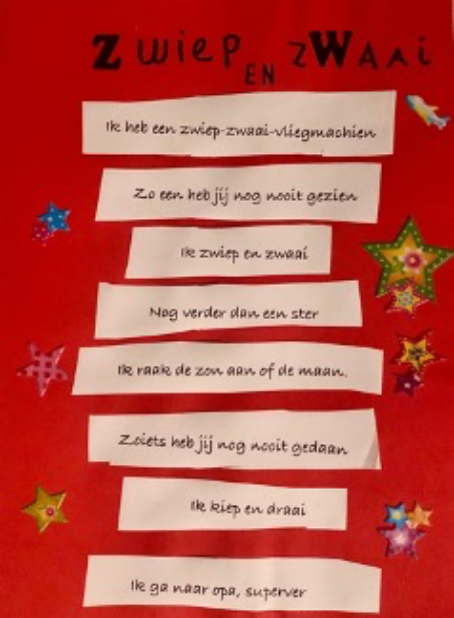 ZWieP
EN
ZWAAi
Ik heb een zwiep-zwaai-vliegmachien
Zo een heb jij nog nooit gezien
Ik zwiep en zwaai
Nog verder dan een ster
Ik raak de zon aan of de maan.
Zoiets heb jij nog nooit gedaan
Ik kiep en draai
Ik ga naar opa, superver